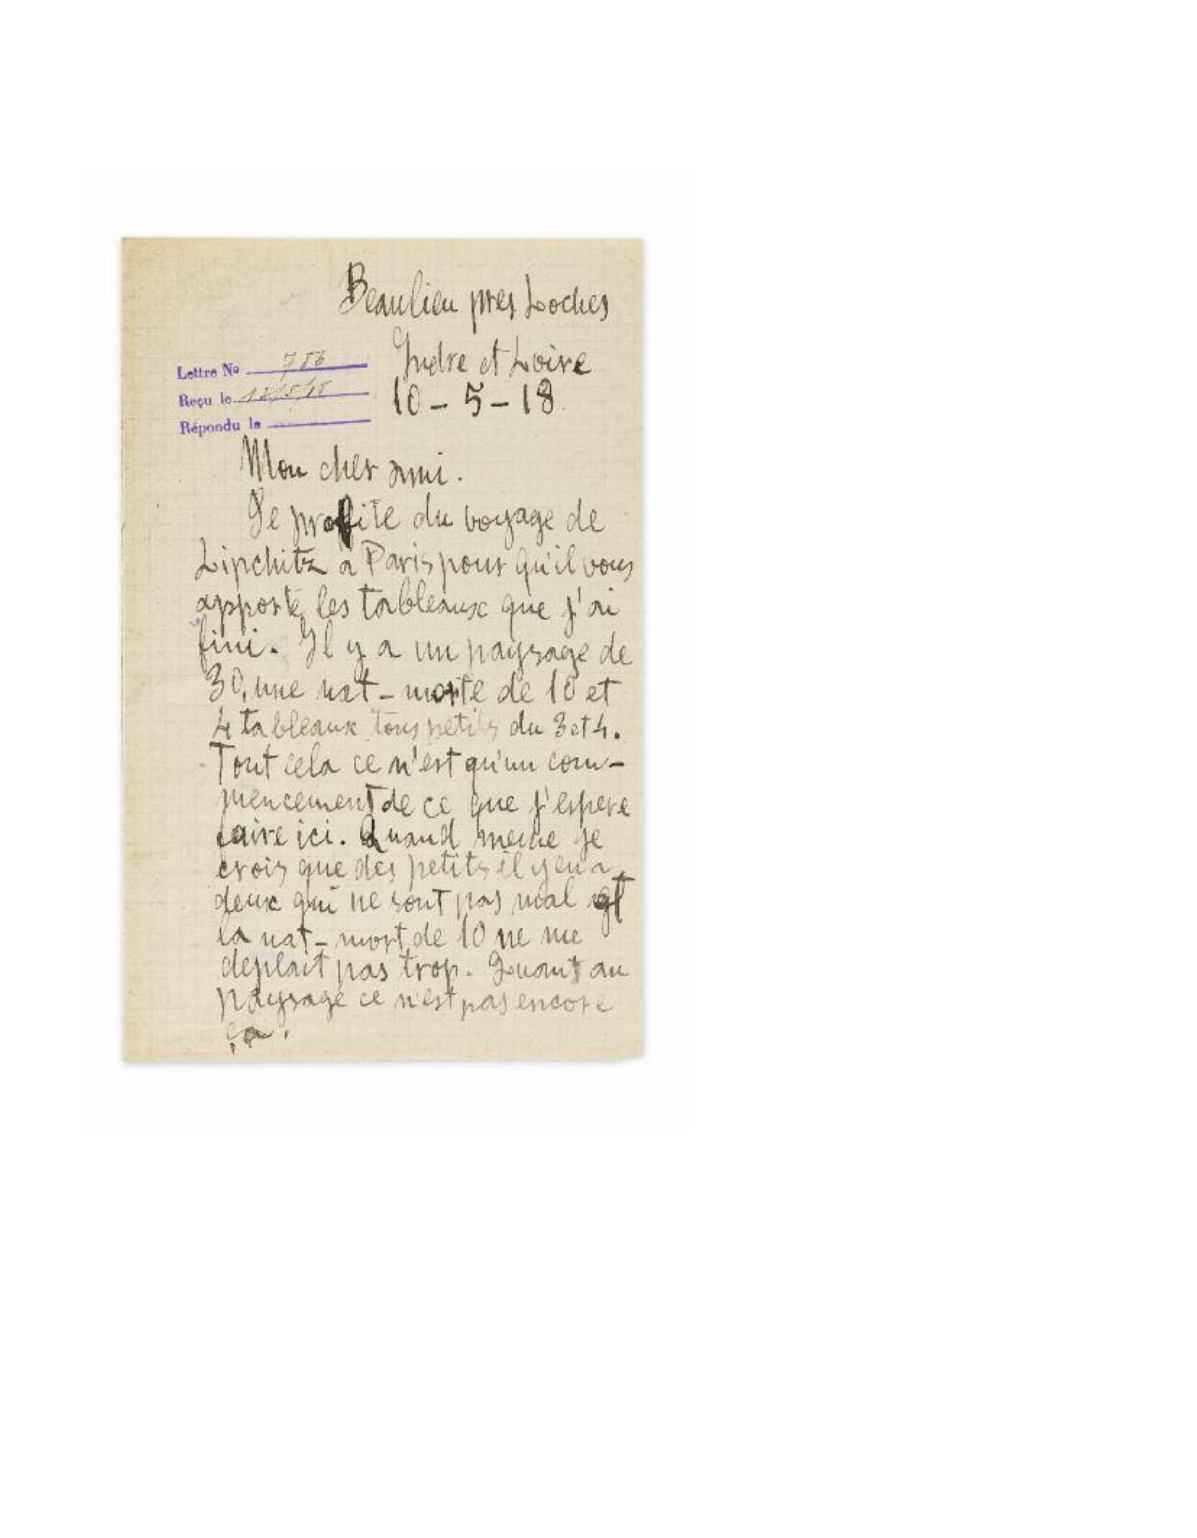 Beaulieu pres Loches
Indre et Loire
Lettre No 786
10 - 5 - 18
Reçu le 12/5/18
Répondu le
Mon cher ami.
Je profite du voyage de
Lipchitz a Paris pour qu'il vous
apporte les tableaux que j'ai
fini. Il y a un paysage de
30, une nat - morte de 10 et
4 tableaux tous petits du 3 et 4.
Tout cela ce n'est qu'un com-
mencement de ce que j'espere
faire ici. Quand meme je
crois que des petits il y en a
deux qui ne sont pas mal et
la nat - mort de 10 ne me
deplait pas trop. Quant au
paysage ce n'est pas encore
ça.